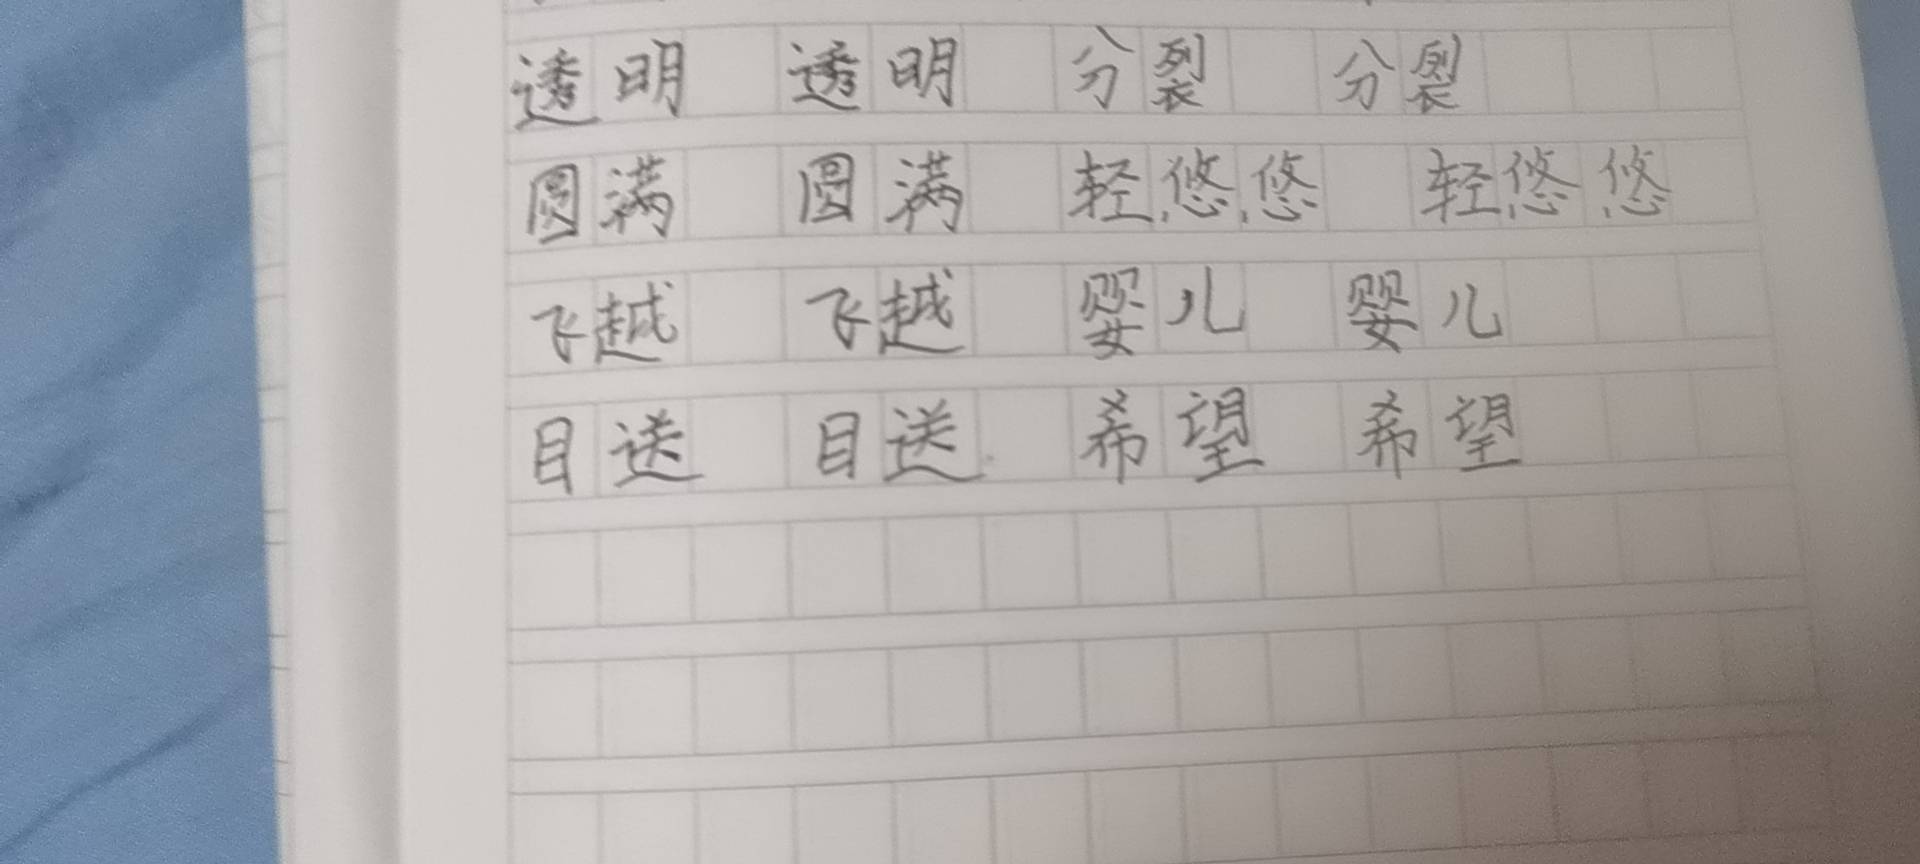 透明 透明 分裂 分裂
圆满 圆满 轻悠悠 轻悠悠
飞越 飞越 婴儿 婴儿
目送 目送 希望 希望